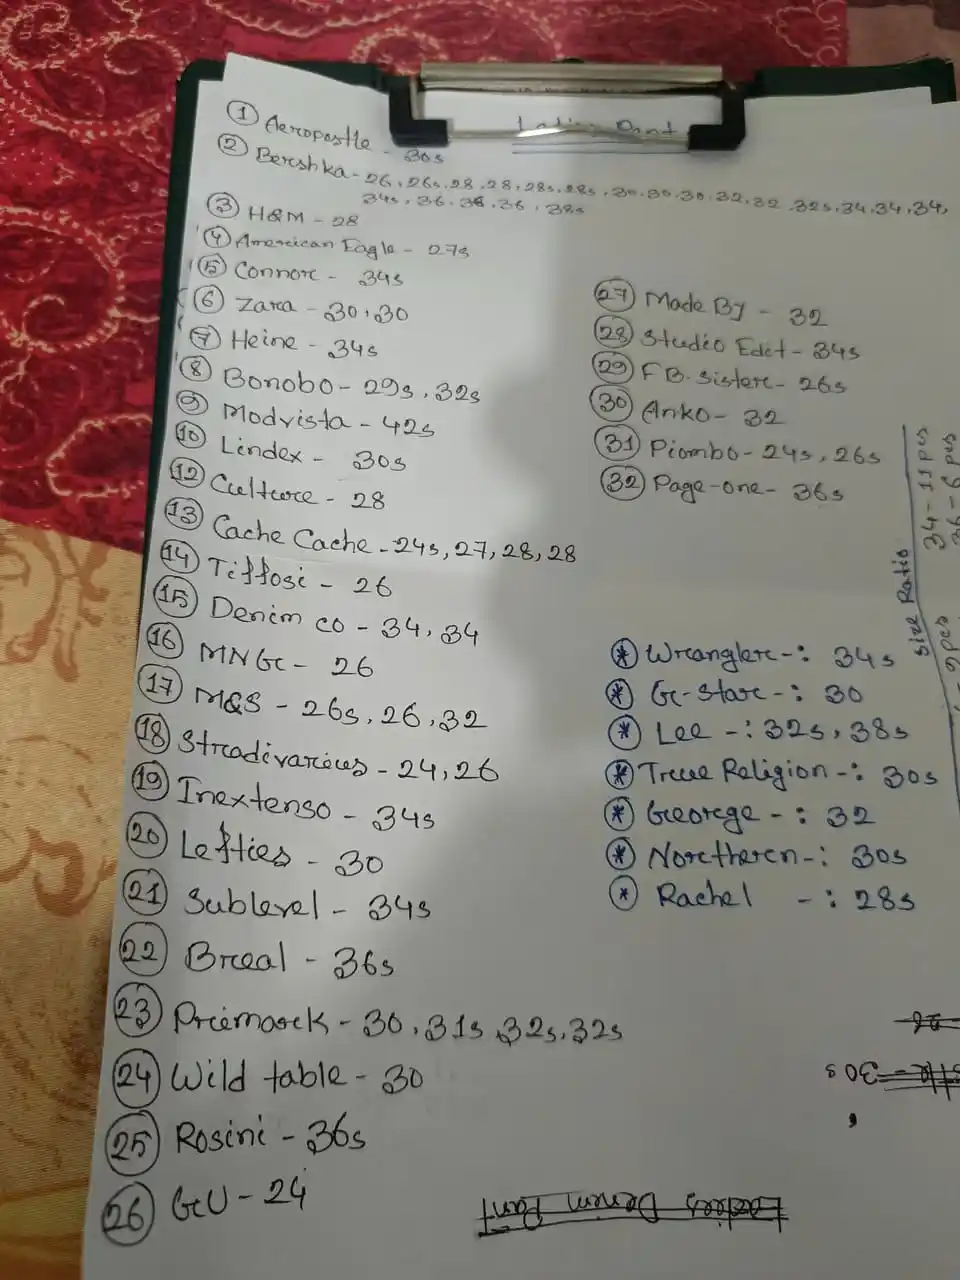 ① Aeropostle - 30s
② Bershka - 26, 26s, 28, 28, 28s, 28s, 30, 30, 30, 32, 32, 32s, 34, 34, 34,
34s, 36, 36, 36, 38s
③ H&M - 28
④ American Eagle - 27s
⑤ Connor - 34s
⑥ Zara - 30, 30
⑦ Heine - 34s
⑧ Bonobo - 29s, 32s
⑨ Modvista - 42s
⑩ Lindex - 30s
⑫ Culture - 28
⑬ Cache Cache - 24s, 27, 28, 28
⑭ Tiffosi - 26
⑮ Denim co - 34, 34
⑯ MNG - 26
⑰ M&S - 26s, 26, 32
⑱ Stradivarius - 24, 26
⑲ Inextenso - 34s
⑳ Lefties - 30
㉑ Sublevel - 34s
㉒ Breal - 36s
㉓ Priemark - 30, 31s, 32s, 32s
㉔ Wild table - 30
㉕ Rosini - 36s
㉖ GU - 24
㉗ Made By - 32
㉘ Studio Edit - 34s
㉙ F.B. Sister - 26s
㉚ Anko - 32
㉛ Piombo - 24s, 26s
㉜ Page-one - 36s
* Wrangler -: 34s
* G-Star -: 30
* Lee -: 32s, 38s
* True Religion -: 30s
* George -: 32
* Northern -: 30s
* Rachel -: 28s
Size Ratio
34 - 11 pcs
36 - 6 pcs
9 pcs
30s
Ladies Denim Pant